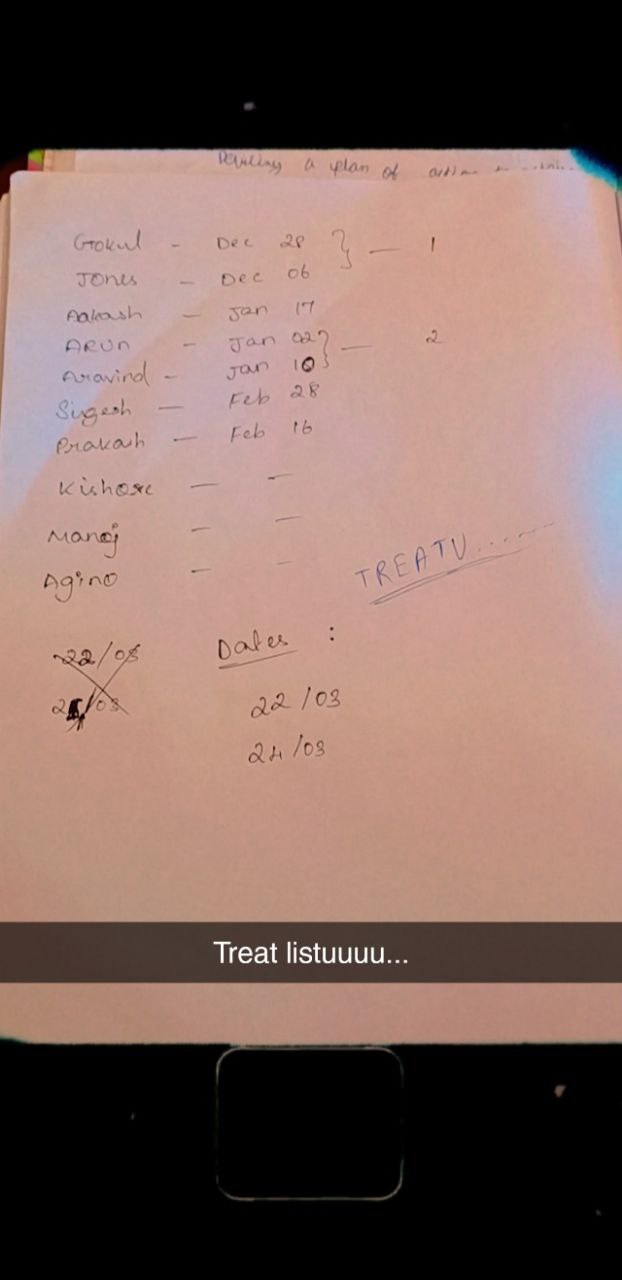 a plan of
Gokul - Dec 28 } — 1
Jones - Dec 06
Aakash - Jan 17
ARUN - Jan 02 } — 2
Aravind - Jan 10
Sugesh — Feb 28
Prakash — Feb 16
Kishore — —
Manoj — —
Agino — —
TREATU........
22/03
Dates :
/03
22/03
24/03
Treat listuuuu...